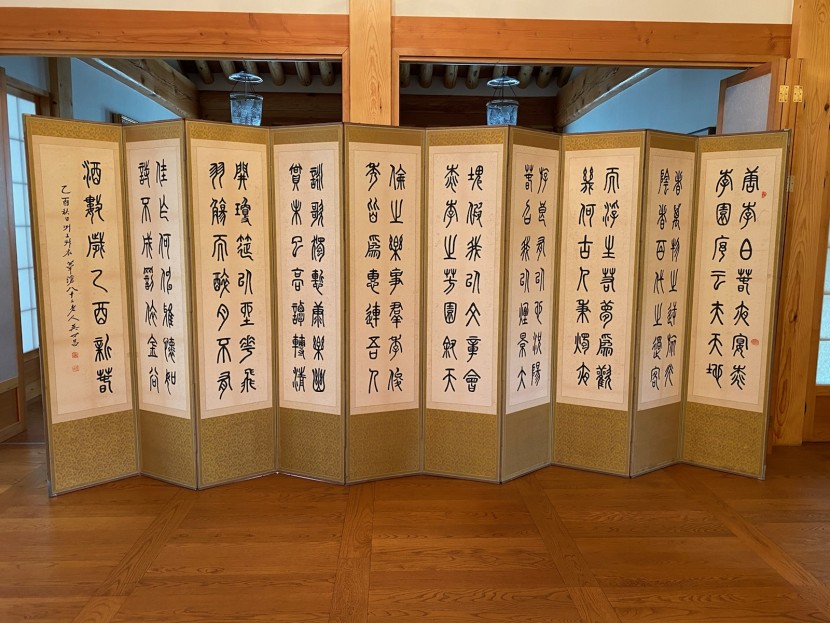 唐李白春夜宴桃
李園序云夫天地
者萬物之逆旅光
陰者百代之過客
而浮生若夢爲歡
幾何古人秉燭夜
游良有以也況陽
春召我以煙景大
塊假我以文章會
桃李之芳園敘天
倫之樂事羣季俊
秀皆爲惠連吾人
詠歌獨慚康樂幽
賞未已高談轉清
開瓊筵以坐花飛
羽觴而醉月不有
佳作何伸雅懷如
詩不成罰依金谷
酒數歲乙酉新春
乙酉秋日 八十二老人